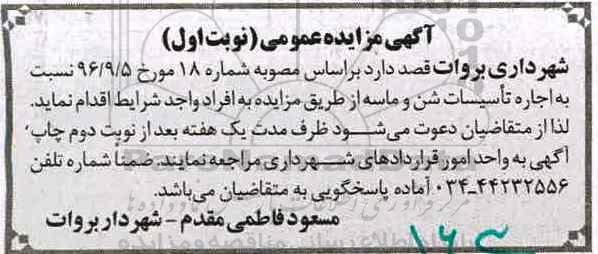 آگهی مزایده عمومی (نوبت اول)
شهرداری بروات قصد دارد براساس مصوبه شماره ۱۸ مورخ ۹۶/۹/۵ نسبت
به اجاره تأسیسات شن و ماسه از طریق مزایده به افراد واجد شرایط اقدام نماید.
لذا از متقاضیان دعوت می‌شود ظرف مدت یک هفته بعد از نوبت دوم چاپ
آگهی به واحد امور قراردادهای شهرداری مراجعه نمایند. ضمناً شماره تلفن
۰۳۴-۴۴۲۳۲۵۵۶ آماده پاسخگویی به متقاضیان می‌باشد.
مسعود فاطمی مقدم - شهردار بروات